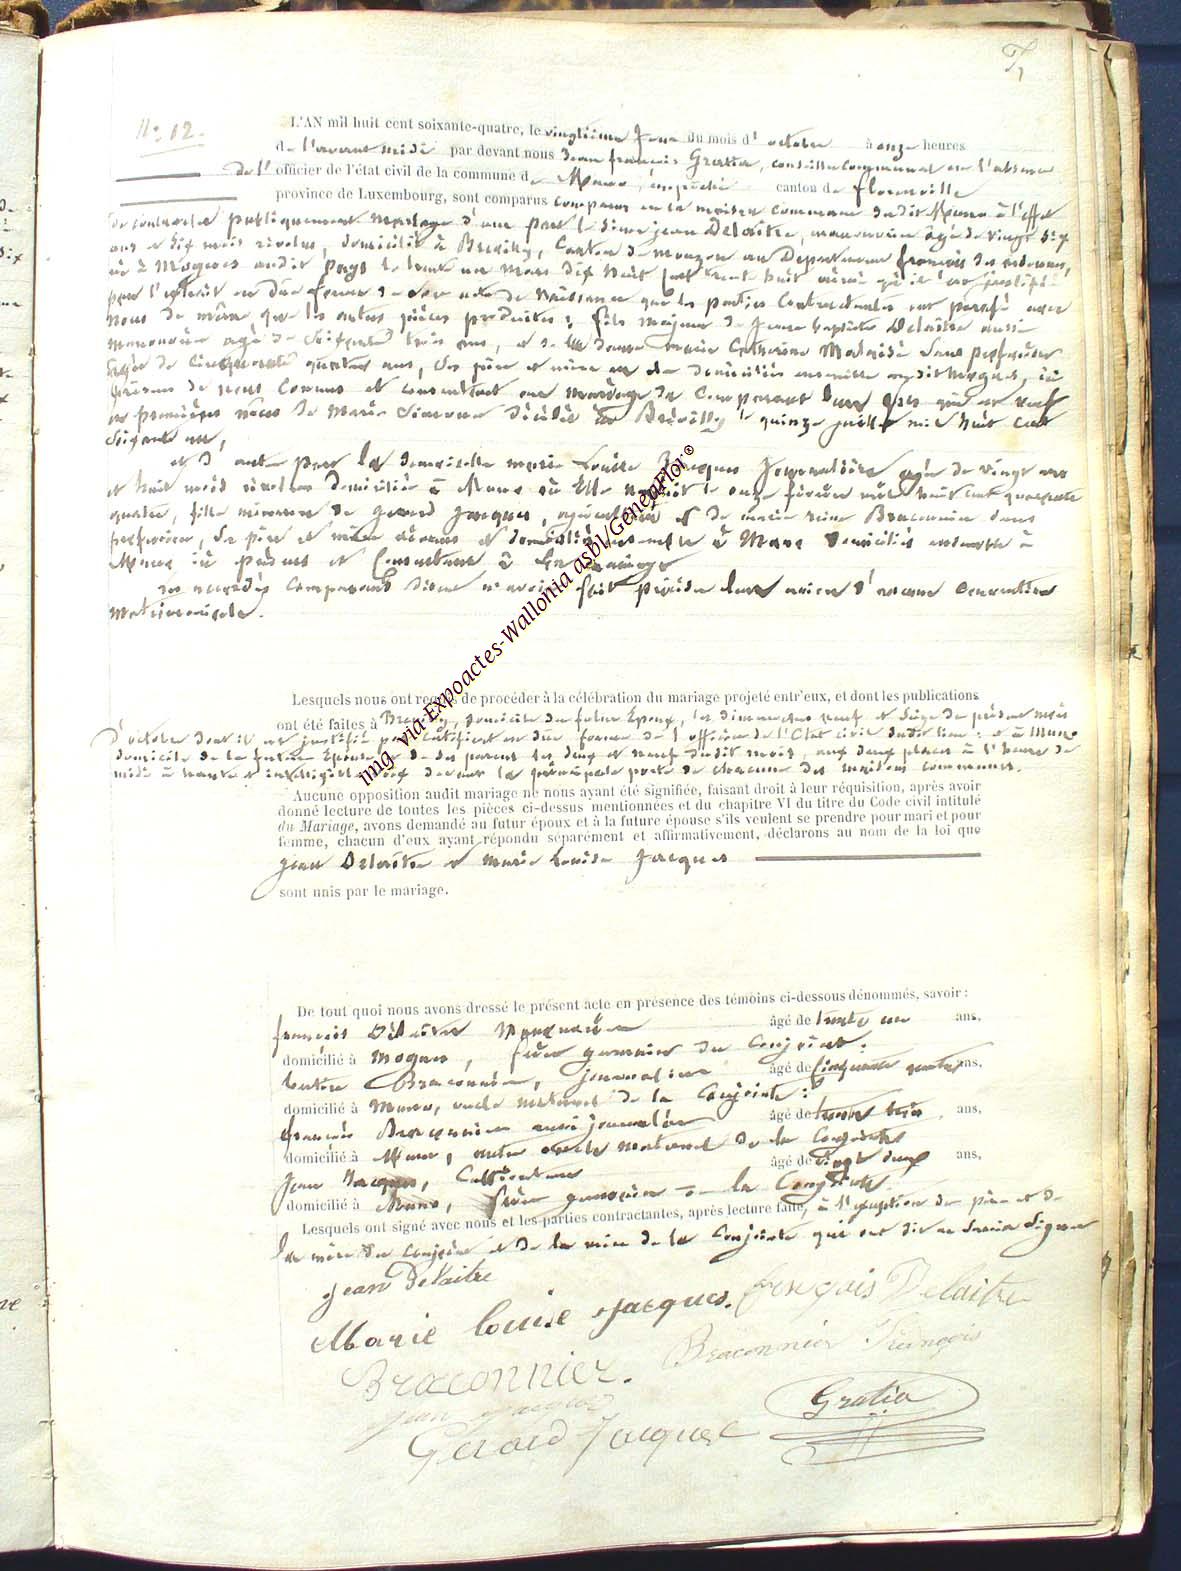 N: 12.
L'AN mil huit cent soixante-quatre, le vingtième jour du mois d'octobre à onze heures
de l'avant midi par devant nous Jean françois Gratia, conseiller communal en l'absence
de l' officier de l'état civil de la commune de Muno, empêché canton de florenville
province de Luxembourg, sont comparus comparus en la maison commune dudit Muno à l'effet
de contracter publiquement mariage d'une part le sieur jean Delaitre, manoeuvre âgé de vingt six
ans et dix mois révolus, domicilié à Brévilly, Canton de mouzon au Département français des ardennes,
né à Mogues audit pays le trente un mars dix huit cent trente huit
par l'extrait en due forme de son acte de Naissance que les parties Contractantes ont paraphé avec
nous de même que les autres pièces produites; fils majeur de Jean baptiste Delaitre aussi
manoeuvre agé de soixante trois ans, et de la dame marie Catherine sans profession
âgée de cinquante quatre ans, ses père et mère domiciliés ensemble audit Mogues, ici
présens de nous Connus et consentant au mariage du Comparant leur fils qui est veuf
en premières nôces de Marie décédée à Brévilly le quinze juillet mil huit cent
soixante un,
et d'autre part la demoiselle marie Louise Jacques Journalière agée de vingt ans
et huit mois révolus domiciliée à Muno où Elle naquit le onze février mil huit cent quarante
quatre, fille mineure de Gerard Jacques, et de marie Braconnier sans
profession, ses père et mère domiciliés ensemble à
Muno ici présens et Consentant à ce mariage
Les susdits Comparants disent n'avoir fait précéder leur union d'aucune Convention
Matrimoniale.
Lesquels nous ont requis de procéder à la célébration du mariage projeté entr'eux, et dont les publications
ont été faites à Brévilly, domicile du futur Epoux, les dimanches neuf et seize du présent mois
d'octobre dont il est justifié par certificat en due forme de l'officier de l'Etat civil dudit lieu; et à Muno
domicile de la future épouse et de ses parens les deux et neuf dudit mois, aux deux places à l'heure de
midi à haute et intelligible voix devant la principale porte de chacune des maisons communes.
Aucune opposition audit mariage ne nous ayant été signifiée, faisant droit à leur réquisition, après avoir
donné lecture de toutes les pièces ci-dessus mentionnées et du chapitre VI du titre du Code civil intitulé
du Mariage, avons demandé au futur époux et à la future épouse s'ils veulent se prendre pour mari et pour
femme, chacun d'eux ayant répondu séparément et affirmativement, déclarons au nom de la loi que
Jean Delaitre et Marie Louise Jacques
sont unis par le mariage.
De tout quoi nous avons dressé le présent acte en présence des témoins ci-dessous dénommés, savoir:
françois Delaitre Manoeuvre âgé de trente un ans,
domicilié à Mogues, frère germain du Conjoint;
Braconnier, journalier âgé de cinquante quatre ans,
domicilié à Muno, oncle maternel de la Conjointe;
françois Braconnier aussi journalier âgé de trente trois ans,
domicilié à Muno, autre oncle maternel de la Conjointe
Jean Jacques, Cultivateur âgé de vingt deux ans,
domicilié à Muno, frère germain de la Conjointe.
Lesquels ont signé avec nous et les parties contractantes, après lecture faite, à l'exception du père et de
la mère du conjoint et de la mère de la Conjointe qui ont dit ne savoir signer
Jean Delaitre
Marie louise Jacques. françois Delaitre
Braconnier. Braconnier François
Jean Jacques Gratia
Gérard Jacques
img via Expoactes-Wallonia asbl/GeneaFlor®